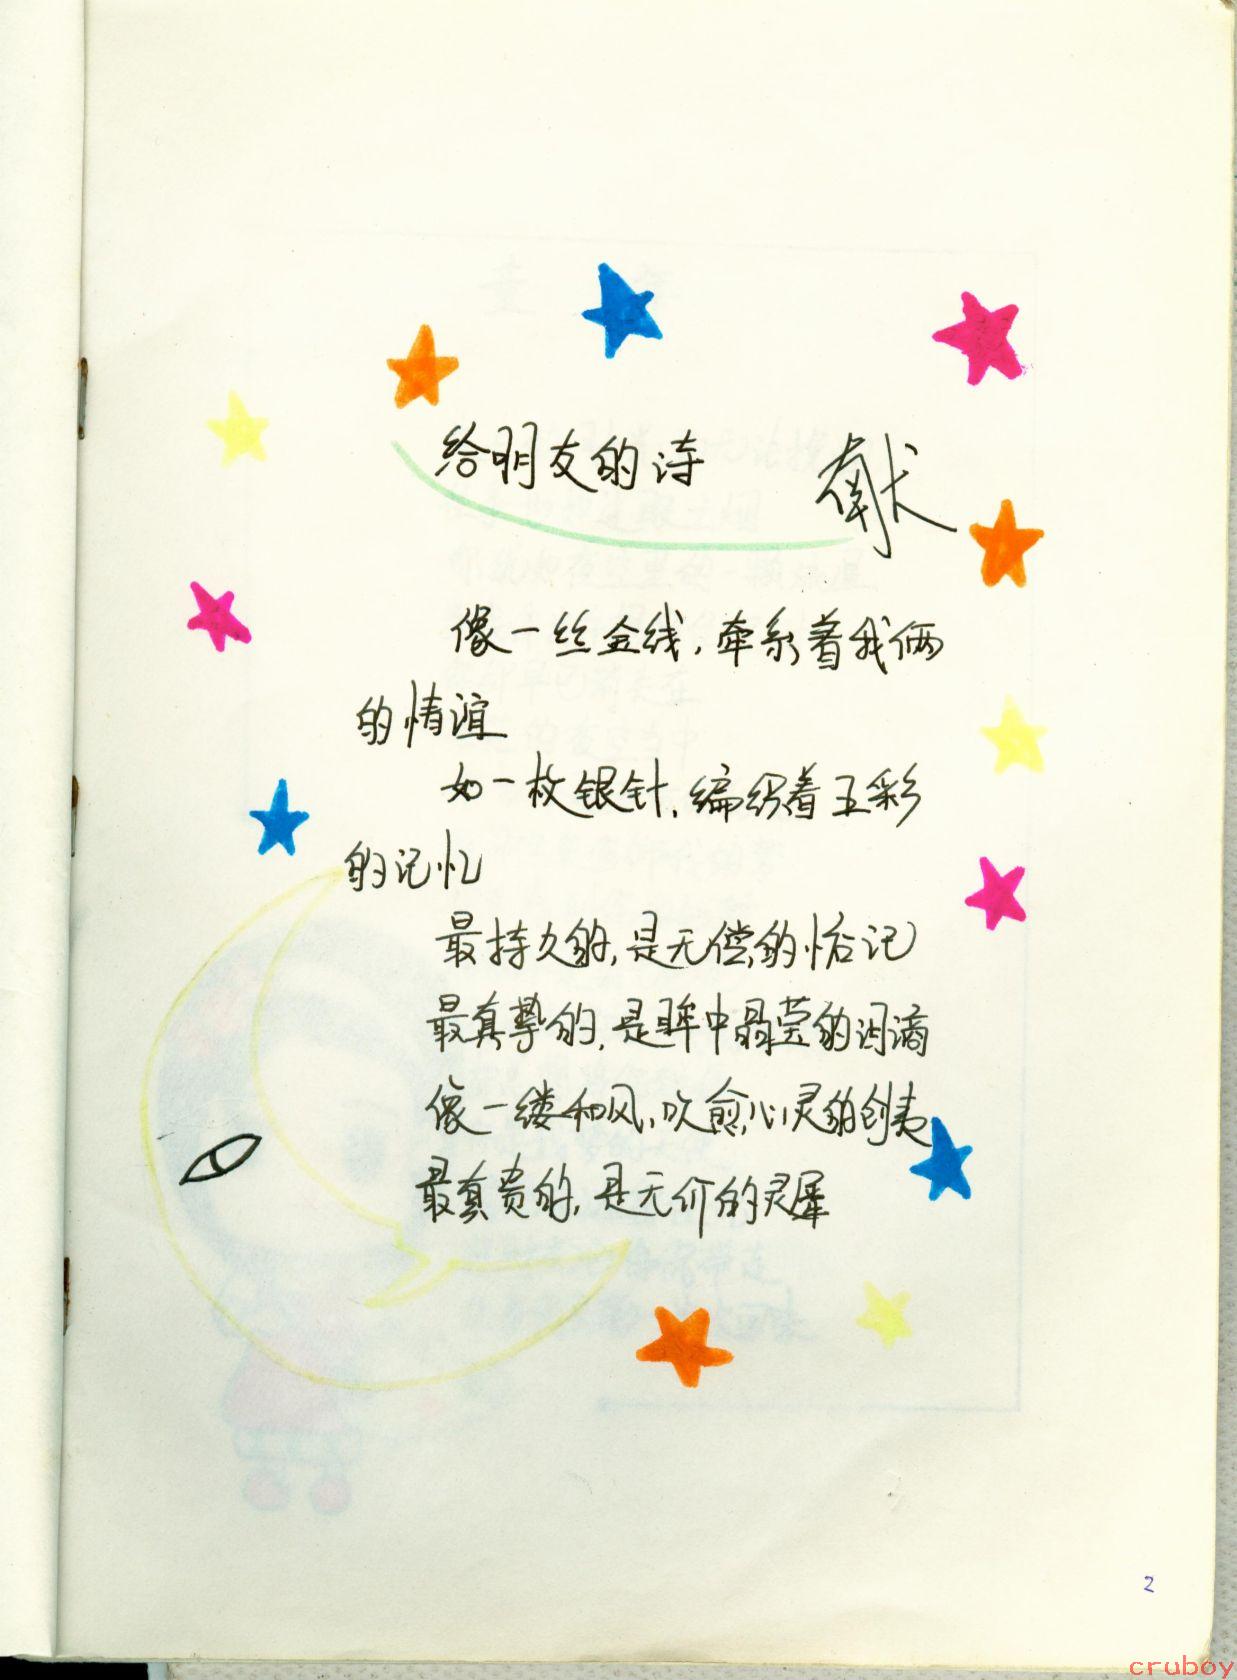 给朋友的诗 献
像一丝金线，牵系着我俩
的情谊
如一枚银针，编织着五彩
的记忆
最持久的，是无偿的惦记
最真挚的，是眸中晶莹的泪滴
像一缕和风，吹愈心灵的创夷
最真贵的，是无价的灵犀
2
cruboy